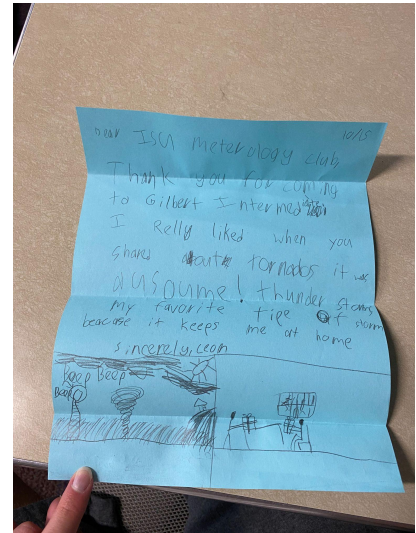 Dear ISU meterology club 10/15
Thank you for coming
to Gilbert Intermed
I Relly liked when you
shared about tornados it was
ausoume! thunder storms
my favorite tipe of storm
beacase it keeps me at home
sincerely, Leon
Beep Beep
Beep